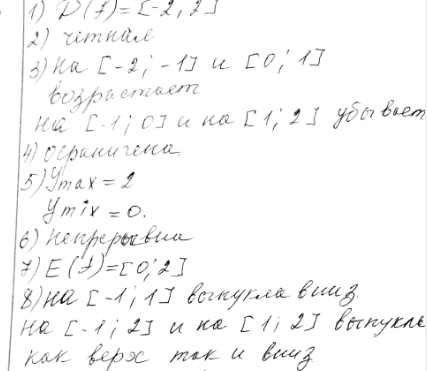 1) D(f)=[-2;2]
2) четная
3) на [-2;-1] и [0;1]
возрастает
на [-1;0] и на [1;2] убывает
4) ограничена
5) Ymax = 2
Ymix = 0.
6) непрерывна
7) E(f)=[0;2]
8) на [-1;1] выпукла вниз.
на [-1;2] и на [1;2] выпукла
как верх так и вниз